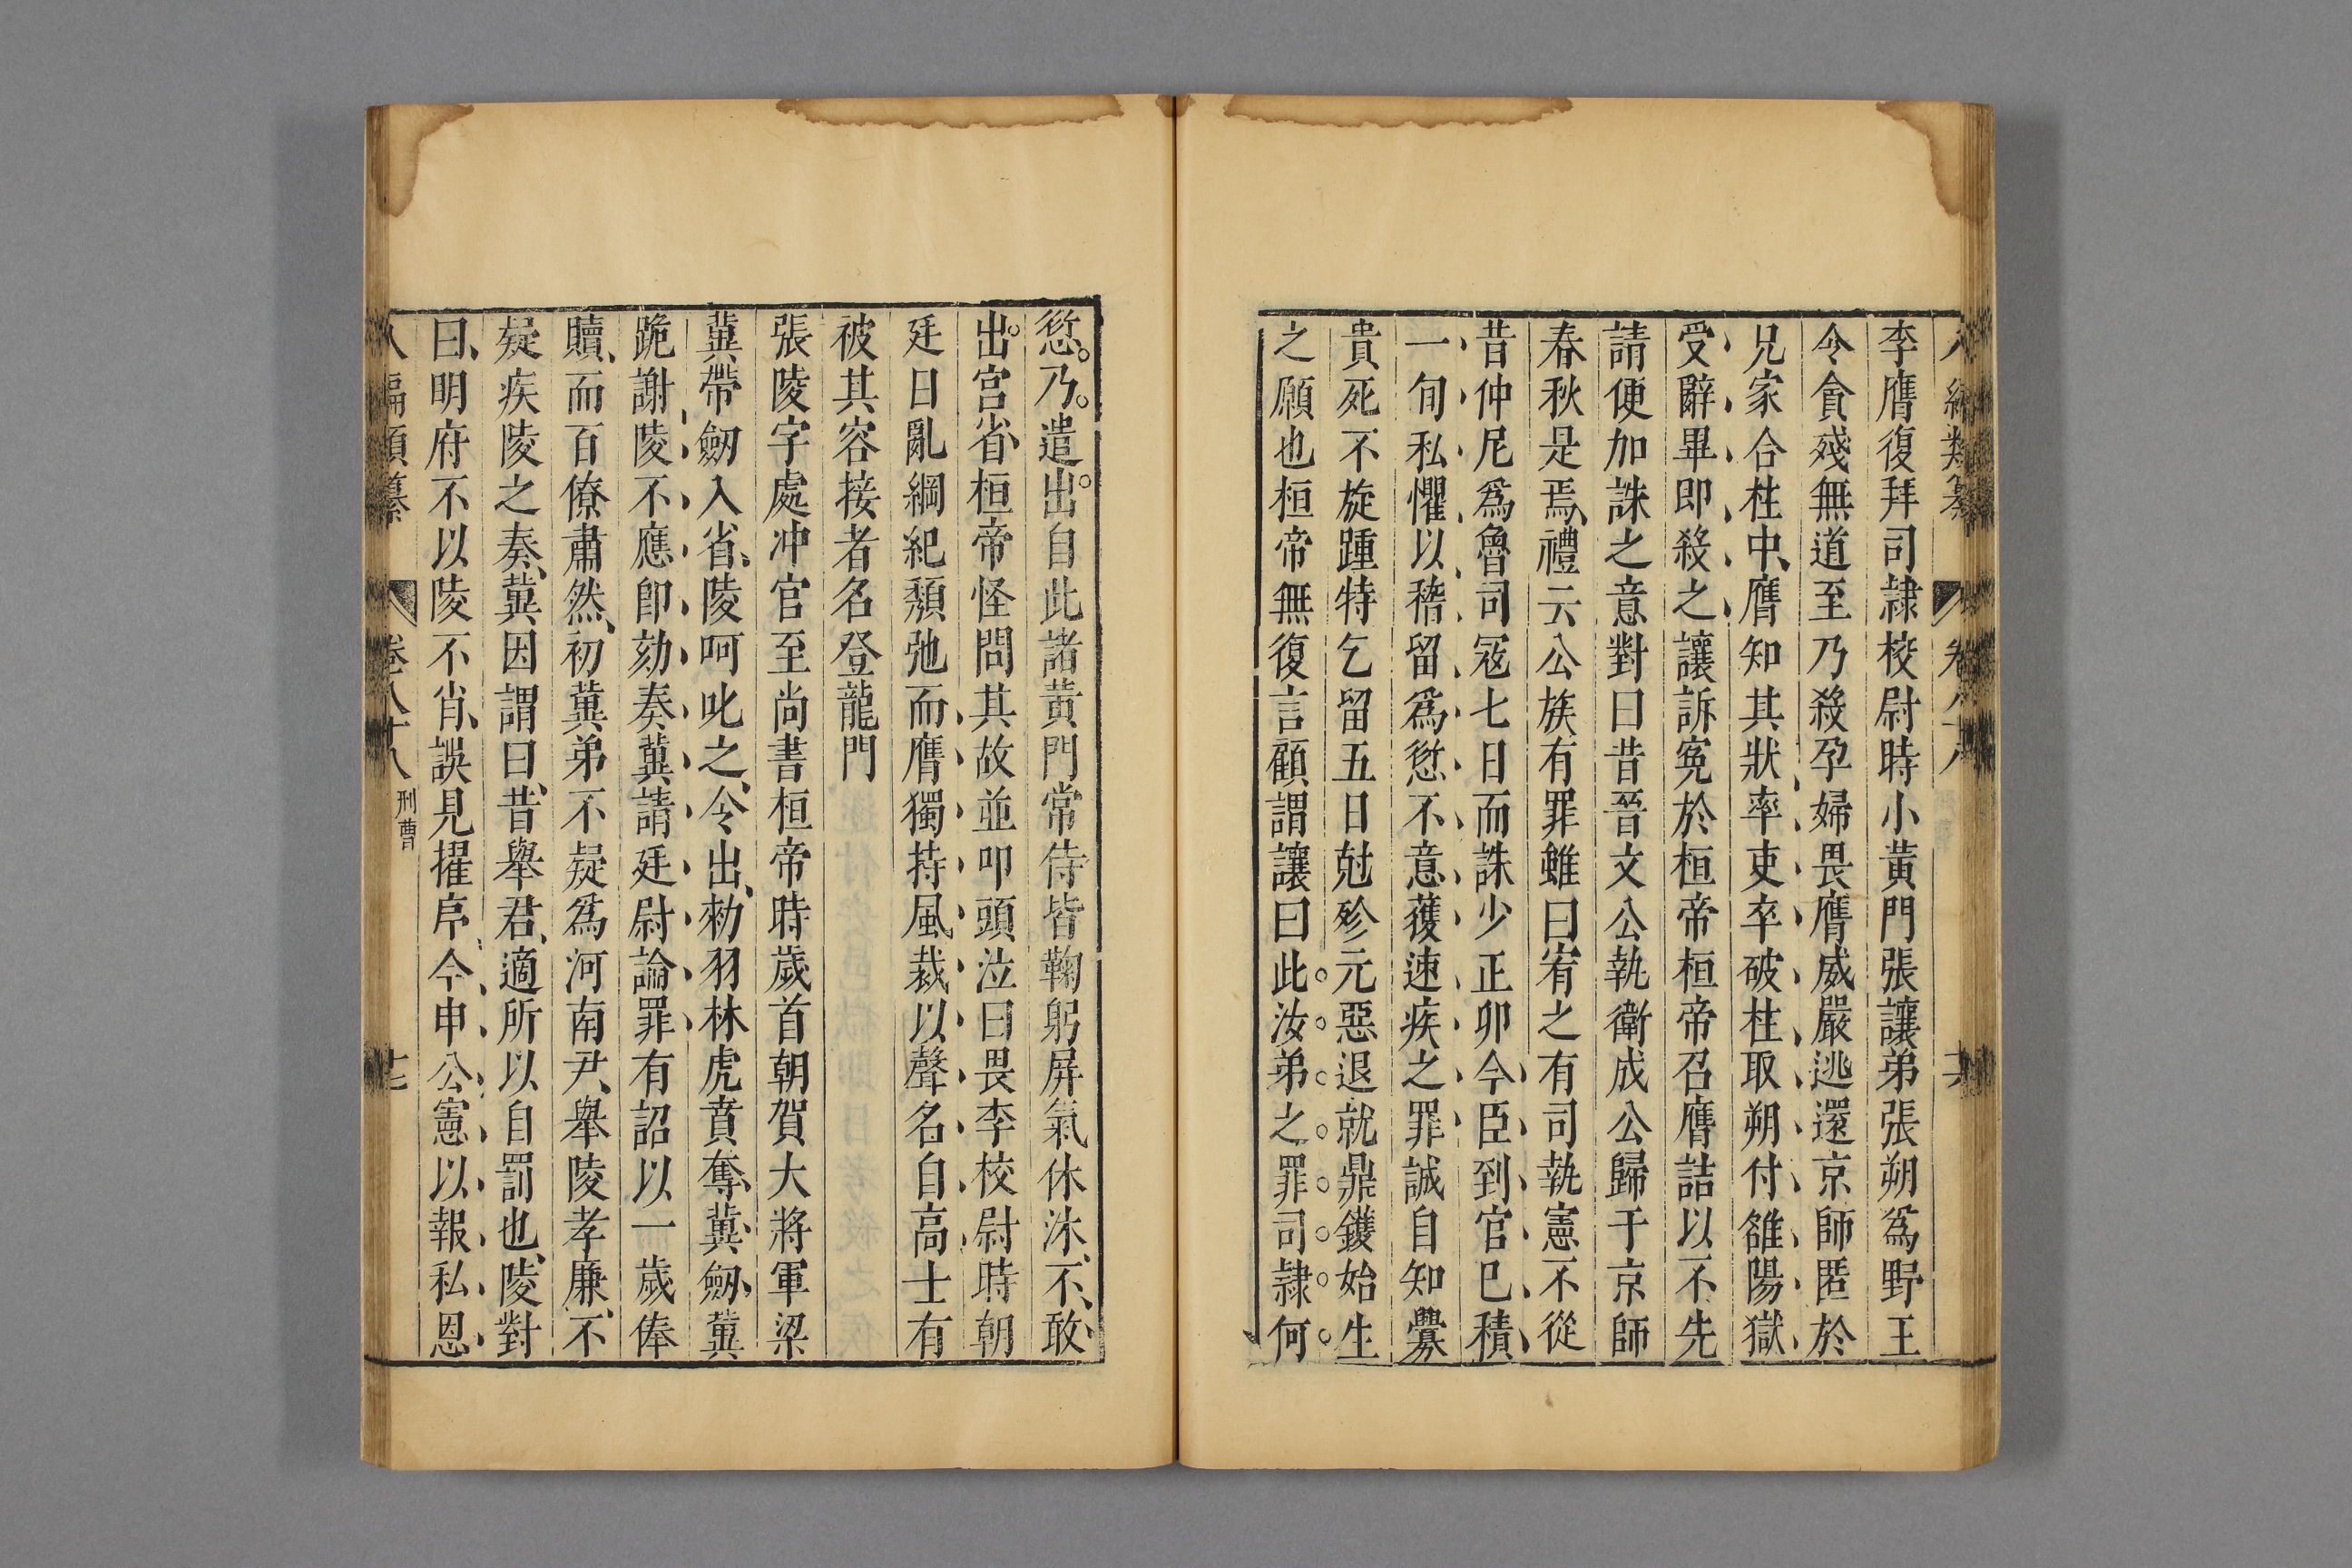 李膺復拜司隷校尉時小黃門張讓弟張朔爲野王
令貪殘無道至乃殺孕婦畏膺威嚴逃還京師匿於
兄家合柱中膺知其狀率吏卒破柱取朔付雒陽獄
受辭畢即殺之讓訴寃於桓帝桓帝召膺詰以不先
請便加誅之意對曰昔晉文公執衛成公歸于京師
春秋是焉禮云公族有罪雖曰宥之有司執憲不從
昔仲尼爲魯司冦七日而誅少正卯今臣到官已積
一旬私懼以稽留爲愆不意獲速疾之罪誠自知釁
貴死不旋踵特乞留五日尅殄元惡退就鼎鑊始生
之願也桓帝無復言顧謂讓曰此汝弟之罪司隷何
愆乃遣出自此諸黃門常侍皆鞠躬屏氣休沐不敢
出宮省桓帝怪問其故並叩頭泣曰畏李校尉時朝
廷日亂綱紀頽弛而膺獨持風裁以聲名自高士有
被其容接者名登龍門
張陵字處沖官至尚書桓帝時歲首朝賀大將軍梁
冀帶劒入省陵呵叱之令出勑羽林虎賁奪冀劒冀
跪謝陵不應卽劾奏冀請廷尉論罪有詔以一歲俸
贖而百僚肅然初冀弟不疑爲河南尹舉陵孝廉不
疑疾陵之奏冀因謂曰昔舉君適所以自罰也陵對
曰明府不以陵不肖誤見擢序今申公憲以報私恩
八編類纂 卷八十八 刑曹 十七